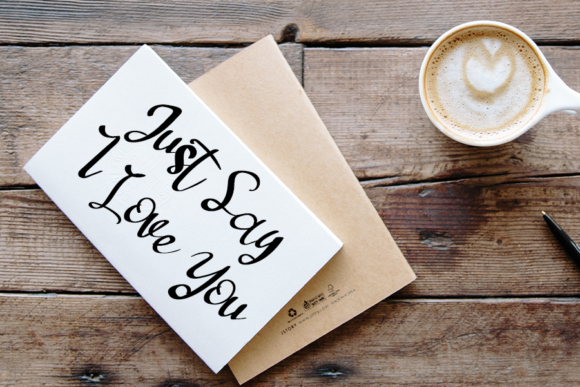 Just Say
I Love You